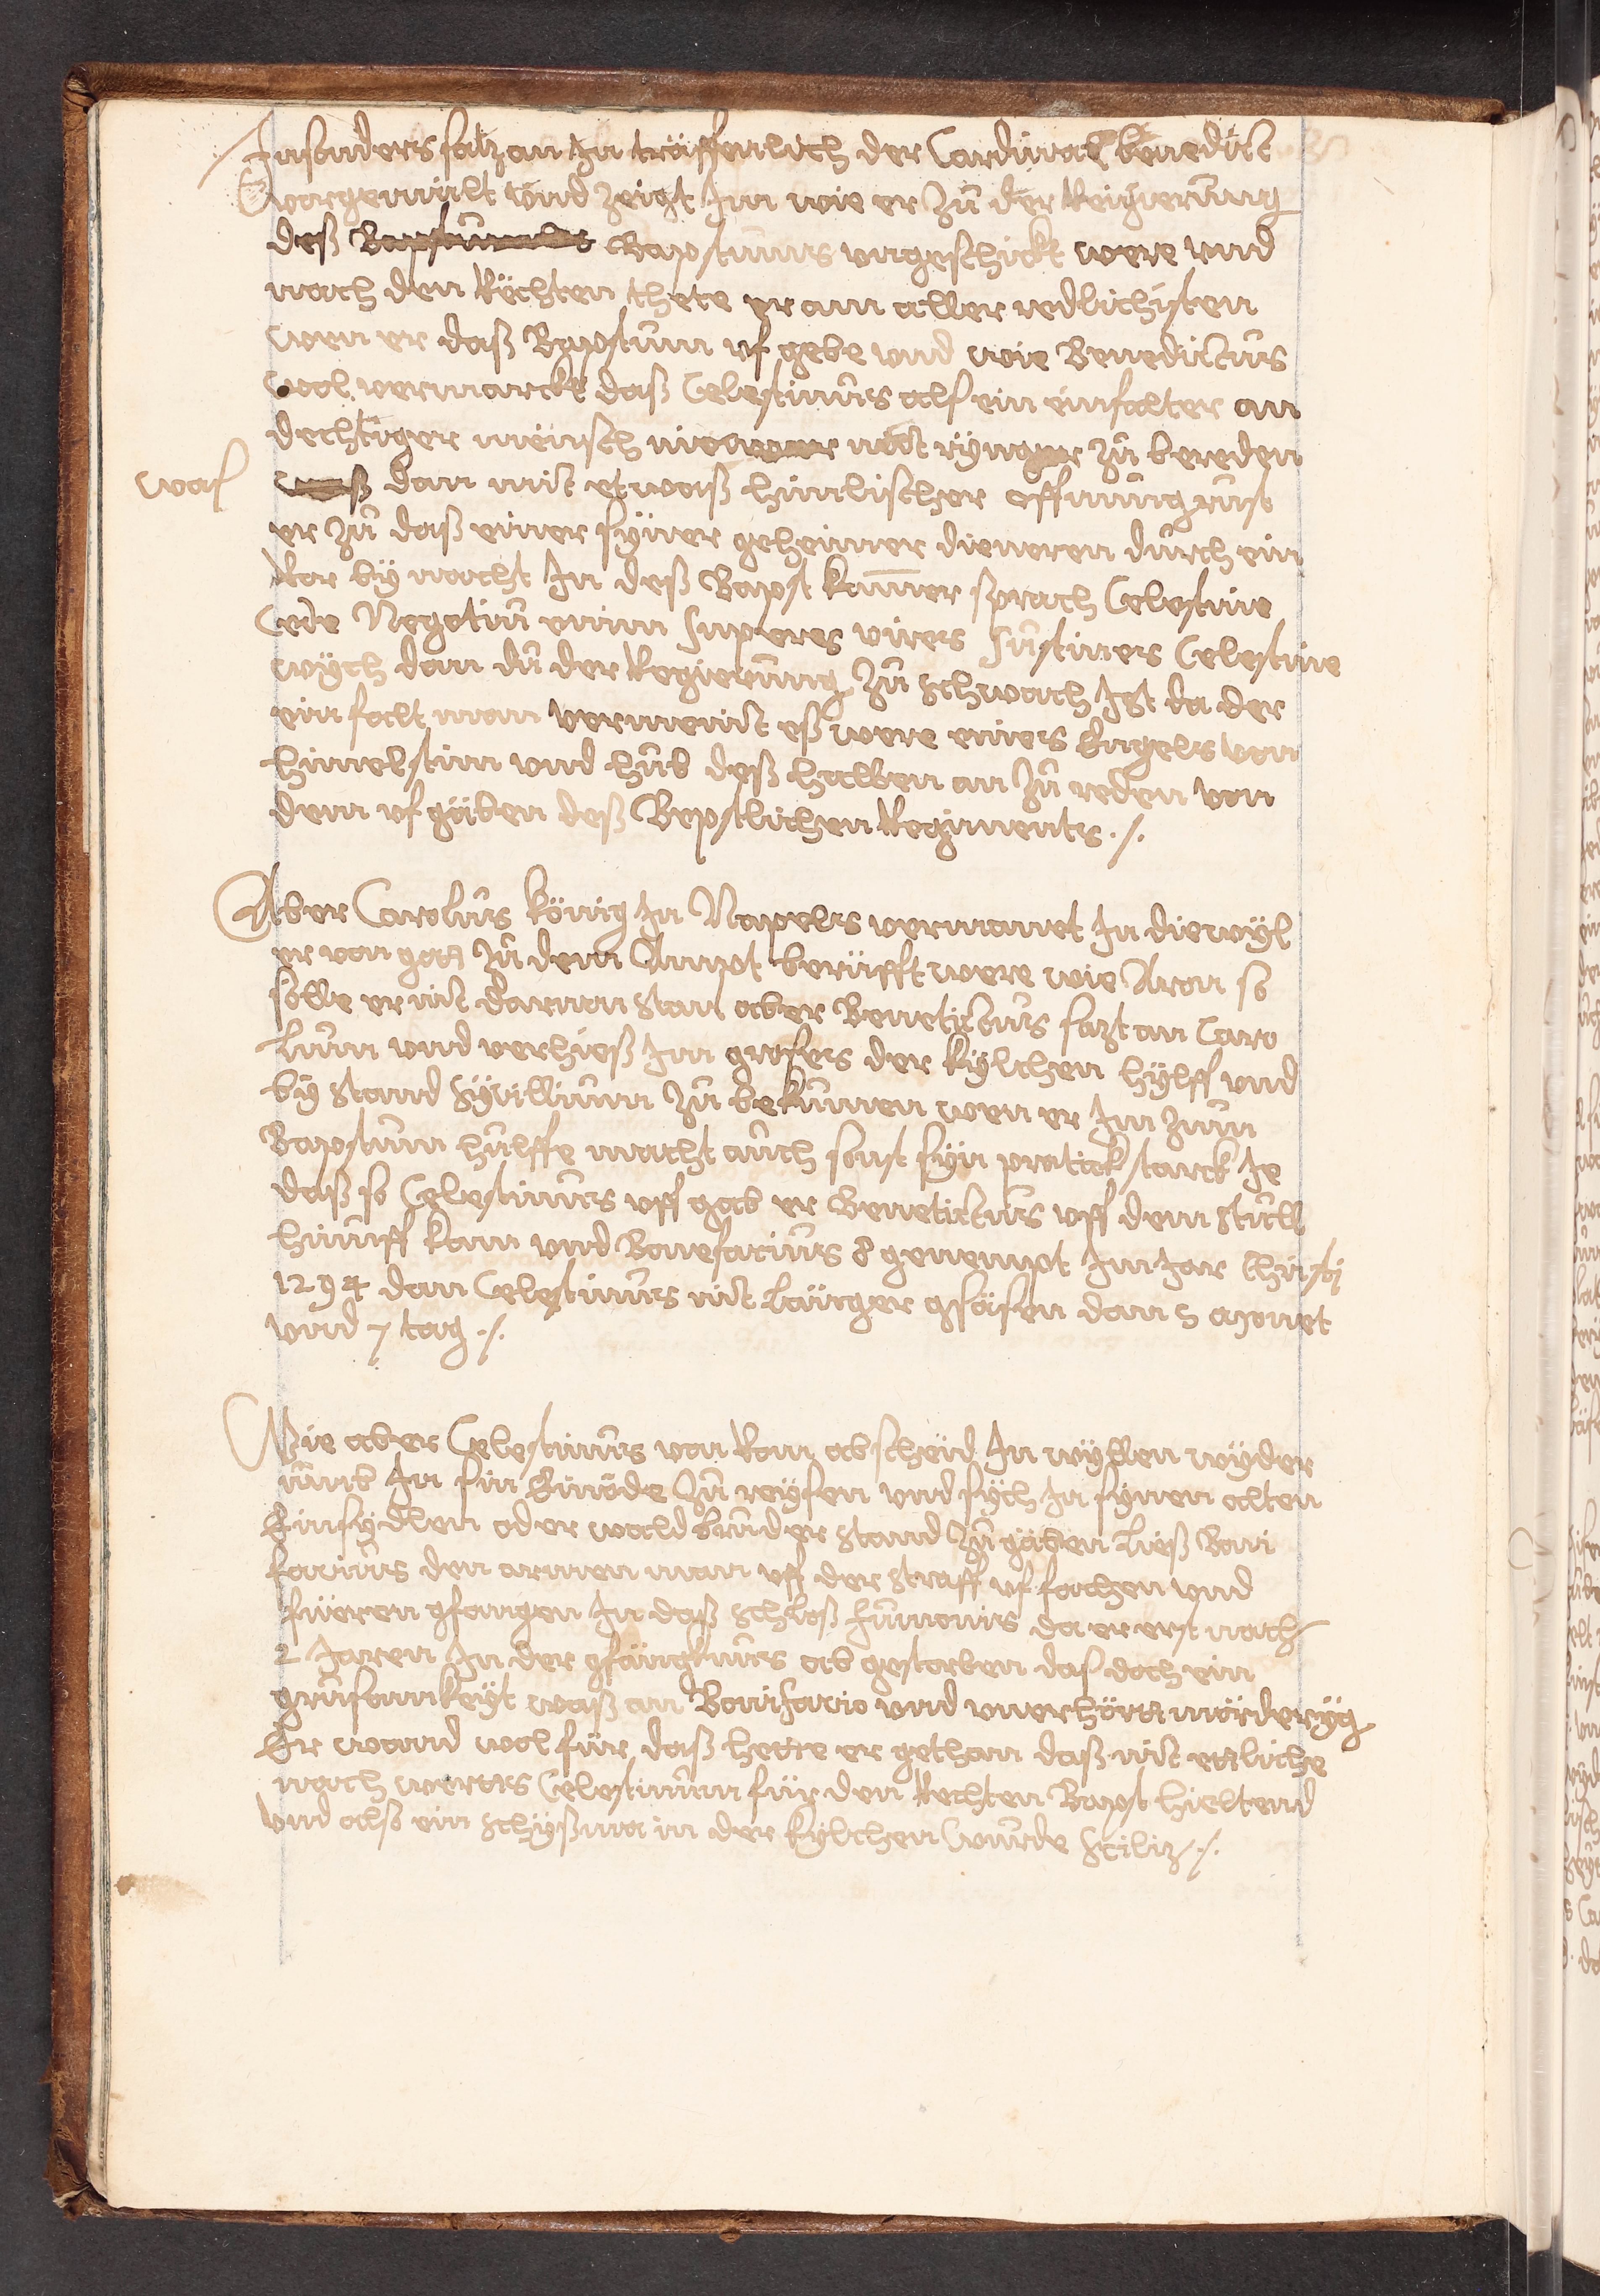 Insonders satz an In träffenlich der Cardinal benedict
vorgemält vnd zeigt Im wie er zů der Reigierung
deß Bapstumbs Bapstumrs vngeschickt were vnd
nach den Rechten thete er am aller redlichisten
wen er daß Bapstum vf gebe vnd wie Benedictus
wol vermarckt daß Celestinus alß ein einfalter an
dechtiger mensch nit ryng zů bereden
waß dan mit etwaß himlischer offnung rust
was
er zů daß einer syner geheimer dieneren durch ein
Ror by nacht In deß Bapst kammer sprach Celestine
Cede Negotiu enim superes vires Sustines Celestine
wÿch dan du der Regierung zů schwach Ist da der
ein falt man vermeint eß were eines Engels von
himel stim vnd hůb deß halben an zů reden von
dem vf gäben deß Bepstlichen Regiments ./.
Aber Carolus König In Napels vermanet In diewyl
er von gott zů dem Ampt berüfft were wie Aron so
solle er nit darvon stan aber Benetictus satzt an Caro
lum vnd verhieß Im grosers der kylchen hÿlff vnd
by stand Sÿcillium zů bekumen wen er Im zum
Bapstum hulffe macht auch sonst syn pratick starck Je
daß so Celestinus vff gab er Benetictus vff dem stůll
hinuff kam vnd Bonefacius 8 genempt Im Jar Christi
1294 dan Celestinus nit länger gsäsen dan 5 monet
vnd 7 tag ./.
Wie aber Celestinus von Rom abscheid In wyllen wyder
vmb In sin Einöde zů reysen vnd sych In synen alten
Einsydlen oder waldbruder stand zů gäben ließ Boni
facius den armen man vff der straß vf fachen vnd
füeren gfangen In daß schloß fumonis da er erst nach
2 Jaren In der gfängknus ab gestorben daß doch ein
grusamkeyt waß an Bonifacio vnd vnerhörtt mörderyg
Er wand wol für daß hette er gethan daß nit ettliche
nach werts Celestinum für den Rechten Bapst hieltend
vnd alß ein schÿßma in der kylchen wurde Sciliz ./.